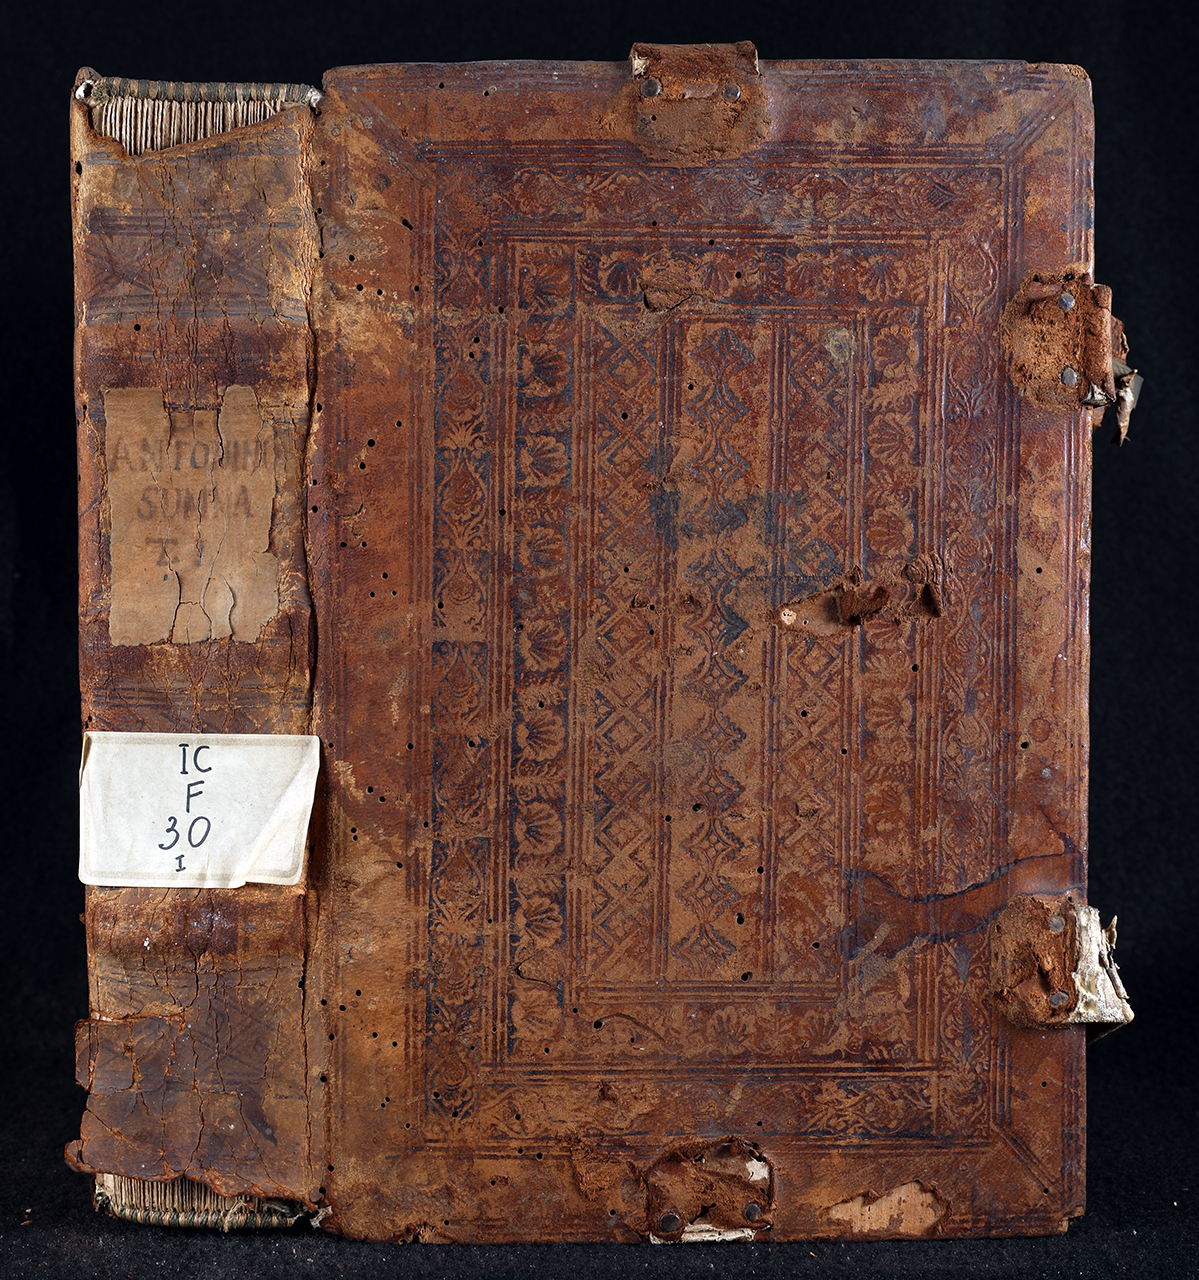 ANTONINI
SUMMA
IC
F
30
I